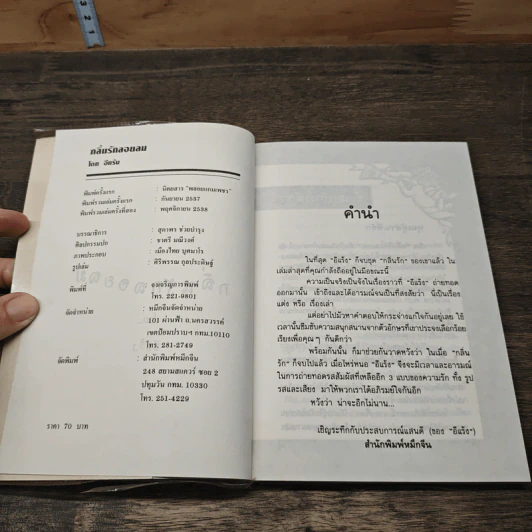 กลิ่นรักลอยลม
โดย อีแร้ง
พิมพ์ครั้งแรก : นิตยสาร "พลอยแกมเพชร"
พิมพ์รวมเล่มครั้งแรก : กันยายน 2537
พิมพ์รวมเล่มครั้งที่สอง : พฤศจิกายน 2538
บรรณาธิการ : สุภาพร ช่วยบำรุง
ศิลปกรรมปก : ชาตรี มณีวงศ์
ภาพประกอบ : เมืองไทย บุศมาโร
รูปเล่ม : ศิริพรรณ กุลประดิษฐ์
พิมพ์ที่ : จุลเจริญการพิมพ์
โทร. 221-9801
จัดจำหน่าย : หมึกจีนจำหน่าย
101 ผ่านฟ้า ถ.นครสวรรค์
เขตป้อมปราบฯ กทม.10110
โทร. 281-2749
จัดพิมพ์ : สำนักพิมพ์หมึกจีน
248 สยามสแควร์ ซอย 2
ปทุมวัน กทม. 10330
โทร. 251-4229
ราคา 70 บาท
คำนำ
ในที่สุด "อีแร้ง" ก็จบชุด "กลิ่นรัก" ของเขาแล้ว ใน
เล่มล่าสุดที่คุณกำลังถืออยู่ในมือขณะนี้
ความเป็นจริงเป็นจังในเรื่องราวที่ "อีแร้ง" ถ่ายทอด
ออกมานั้น เข้าถึงและได้อารมณ์จนเป็นที่สงสัยว่า นี่เป็นเรื่อง
แต่ง หรือ เรื่องเล่า
แต่อย่าไปมัวหาคำตอบให้กระจ่างแก่ใจกันอยู่เลย ใช้
เวลานั้นซึมซับความสนุกสนานจากตัวอักษรที่เขาประจงเลือกร้อย
เรียงเพื่อคุณๆ กันดีกว่า
พร้อมกันนั้น ก็มาช่วยกันวาดหวังว่า ในเมื่อ "กลิ่น
รัก" ก็จบไปแล้ว เมื่อไหร่หนอ "อีแร้ง" จึงจะมีเวลาและอารมณ์
ในการถ่ายทอดรสสัมผัสที่เหลืออีก 3 แบบของความรัก ทั้ง รูป
รสและเสียง มาให้พวกเราได้อภิรมย์ใจกันอีก
หวังว่า น่าจะอีกไม่นาน...
เชิญระทึกกับประสบการณ์แสนดี (ของ "อีแร้ง")
สำนักพิมพ์หมึกจีน